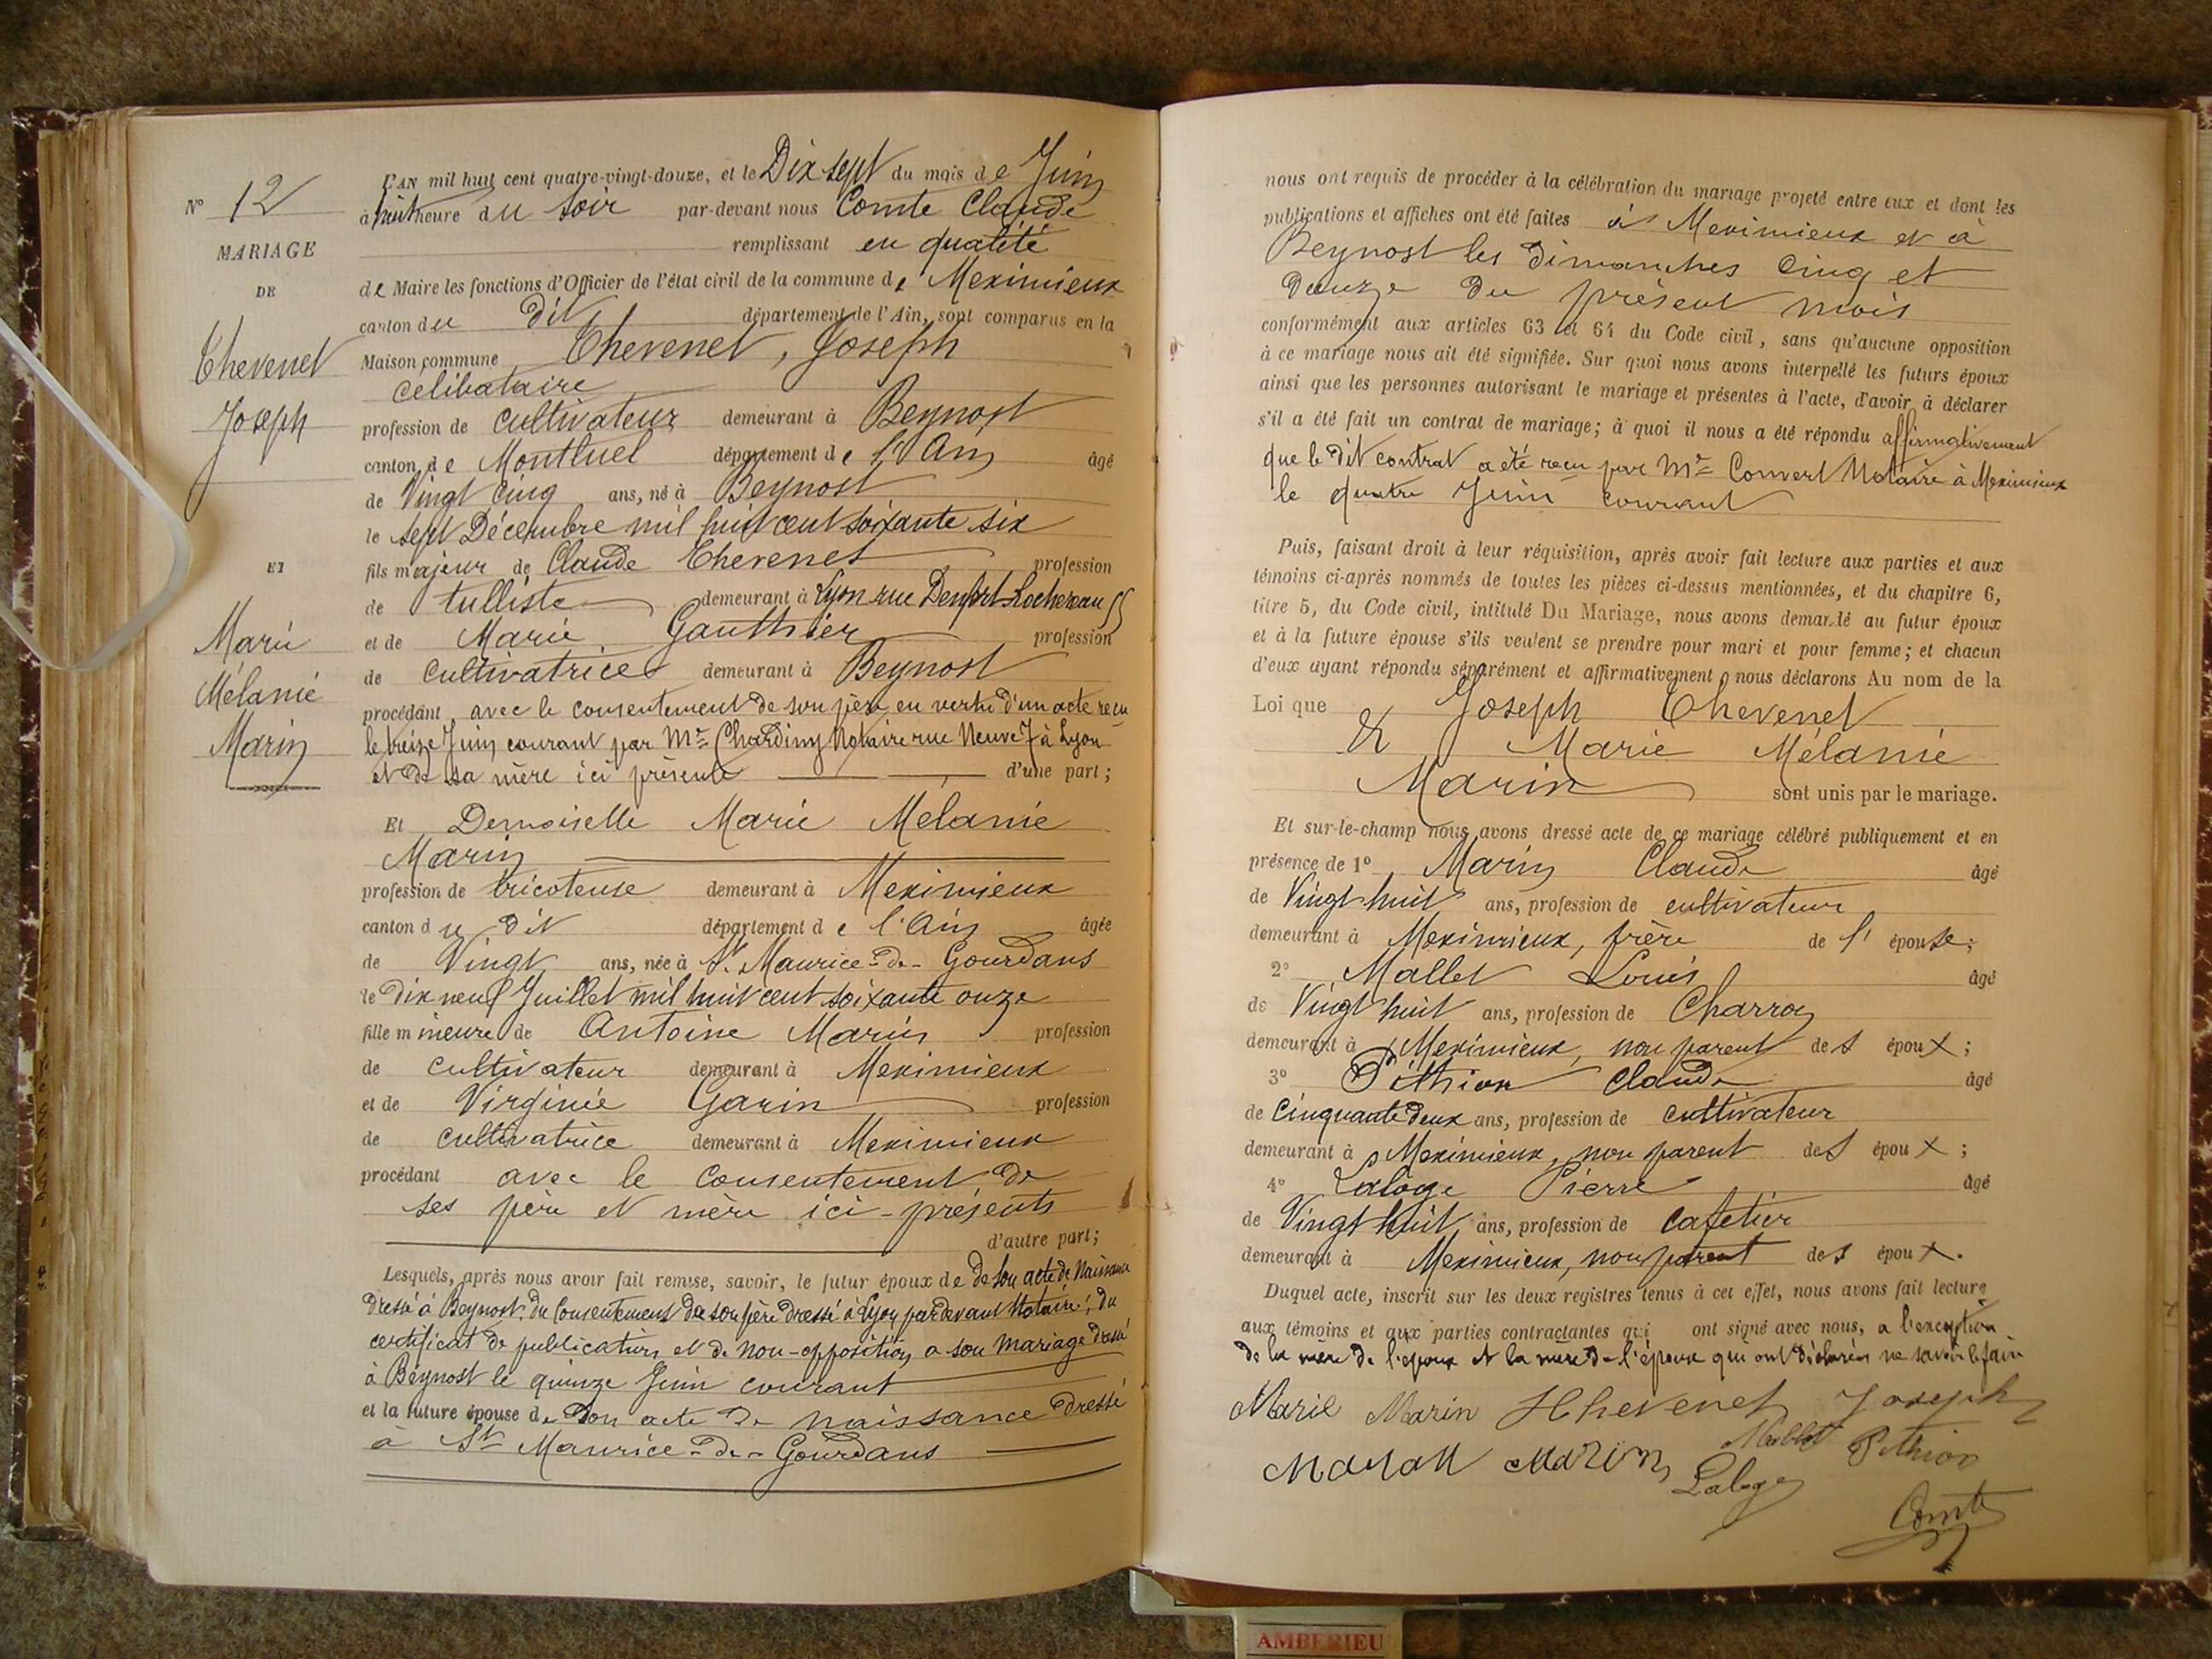 N° 12
MARIAGE
DE
Chevenet
Joseph
ET
Marie
Mélanie
Marin
L'AN mil huit cent quatre-vingt-douze, et le Dix sept du mois de Juin
à huit heure du soir par-devant nous Comte Claude
remplissant en qualité
de Maire les fonctions d'Officier de l'état civil de la commune de Meximieux
canton du dit département de l'Ain, sont comparus en la
Maison commune Chevenet, Joseph
célibataire
profession de cultivateur demeurant à Beynost
canton de Montluel département de l'Ain âgé
de Vingt cinq ans, né à Beynost
le sept Décembre mil huit cent soixante six
fils majeur de Claude Chevenet profession
de tulliste demeurant à Lyon rue Denfert-Rochereau 55
et de Marie Gauthier profession
de cultivatrice demeurant à Beynost
procédant avec le consentement de son père en vertu d'un acte reçu
le treize Juin courant par Mr Chardiny Notaire rue Neuve 7 à Lyon
et de sa mère ici présente d'une part;
Et Demoiselle Marie Mélanie
Marin
profession de tricoteuse demeurant à Meximieux
canton du dit département de l'Ain âgée
de Vingt ans, née à St Maurice-de-Gourdans
le dix neuf Juillet mil huit cent soixante onze
fille mineure de Antoine Marin profession
de cultivateur demeurant à Meximieux
et de Virginie Garin profession
de cultivatrice demeurant à Meximieux
procédant avec le consentement de
ses père et mère ici-présents
d'autre part;
Lesquels, après nous avoir fait remise, savoir, le futur époux de de son acte de Naissance
dressé à Beynost, du Consentement de son père dressé à Lyon pardevant Notaire, du
certificat de publication et de non-opposition a son mariage dressé
à Beynost le quinze Juin courant
et la future épouse de son acte de naissance dressé
à St Maurice-de-Gourdans
nous ont requis de procéder à la célébration du mariage projeté entre eux et dont les
publications et affiches ont été faites à Meximieux et à
Beynost les dimanches cinq et
douze du présent mois
conformément aux articles 63 et 64 du Code civil, sans qu'aucune opposition
à ce mariage nous ait été signifiée. Sur quoi nous avons interpellé les futurs époux
ainsi que les personnes autorisant le mariage et présentes à l'acte, d'avoir à déclarer
s'il a été fait un contrat de mariage; à quoi il nous a été répondu affirmativement
que le dit contrat a été reçu par Mr Convert Notaire à Meximieux
le quatre Juin courant
Puis, faisant droit à leur réquisition, après avoir fait lecture aux parties et aux
témoins ci-après nommés de toutes les pièces ci-dessus mentionnées, et du chapitre 6,
titre 5, du Code civil, intitulé Du Mariage, nous avons demandé au futur époux
et à la future épouse s'ils veulent se prendre pour mari et pour femme; et chacun
d'eux ayant répondu séparément et affirmativement, nous déclarons Au nom de la
Loi que Joseph Chevenet
& Marie Mélanie
Marin sont unis par le mariage.
Et sur-le-champ nous avons dressé acte de ce mariage célébré publiquement et en
présence de 1° Marin Claude âgé
de Vingt-huit ans, profession de cultivateur
demeurant à Meximieux, frère de l'épouse;
2° Mallet Louis âgé
de Vingt huit ans, profession de Charron
demeurant à Meximieux, non parent des époux;
3° Pithion Claude âgé
de Cinquante deux ans, profession de cultivateur
demeurant à Meximieux, non parent des époux;
4° Laloge Pierre âgé
de Vingt huit ans, profession de cafetier
demeurant à Meximieux, non parent des époux.
Duquel acte, inscrit sur les deux registres tenus à cet effet, nous avons fait lecture
aux témoins et aux parties contractantes qui ont signé avec nous, a l'exception
de la mère de l'époux et la mère de l'épouse qui ont déclarés ne savoir le faire
Marie Marin Chevenet Joseph
Mallet Pithion
Marin Laloge
Comte
AMBERIEU